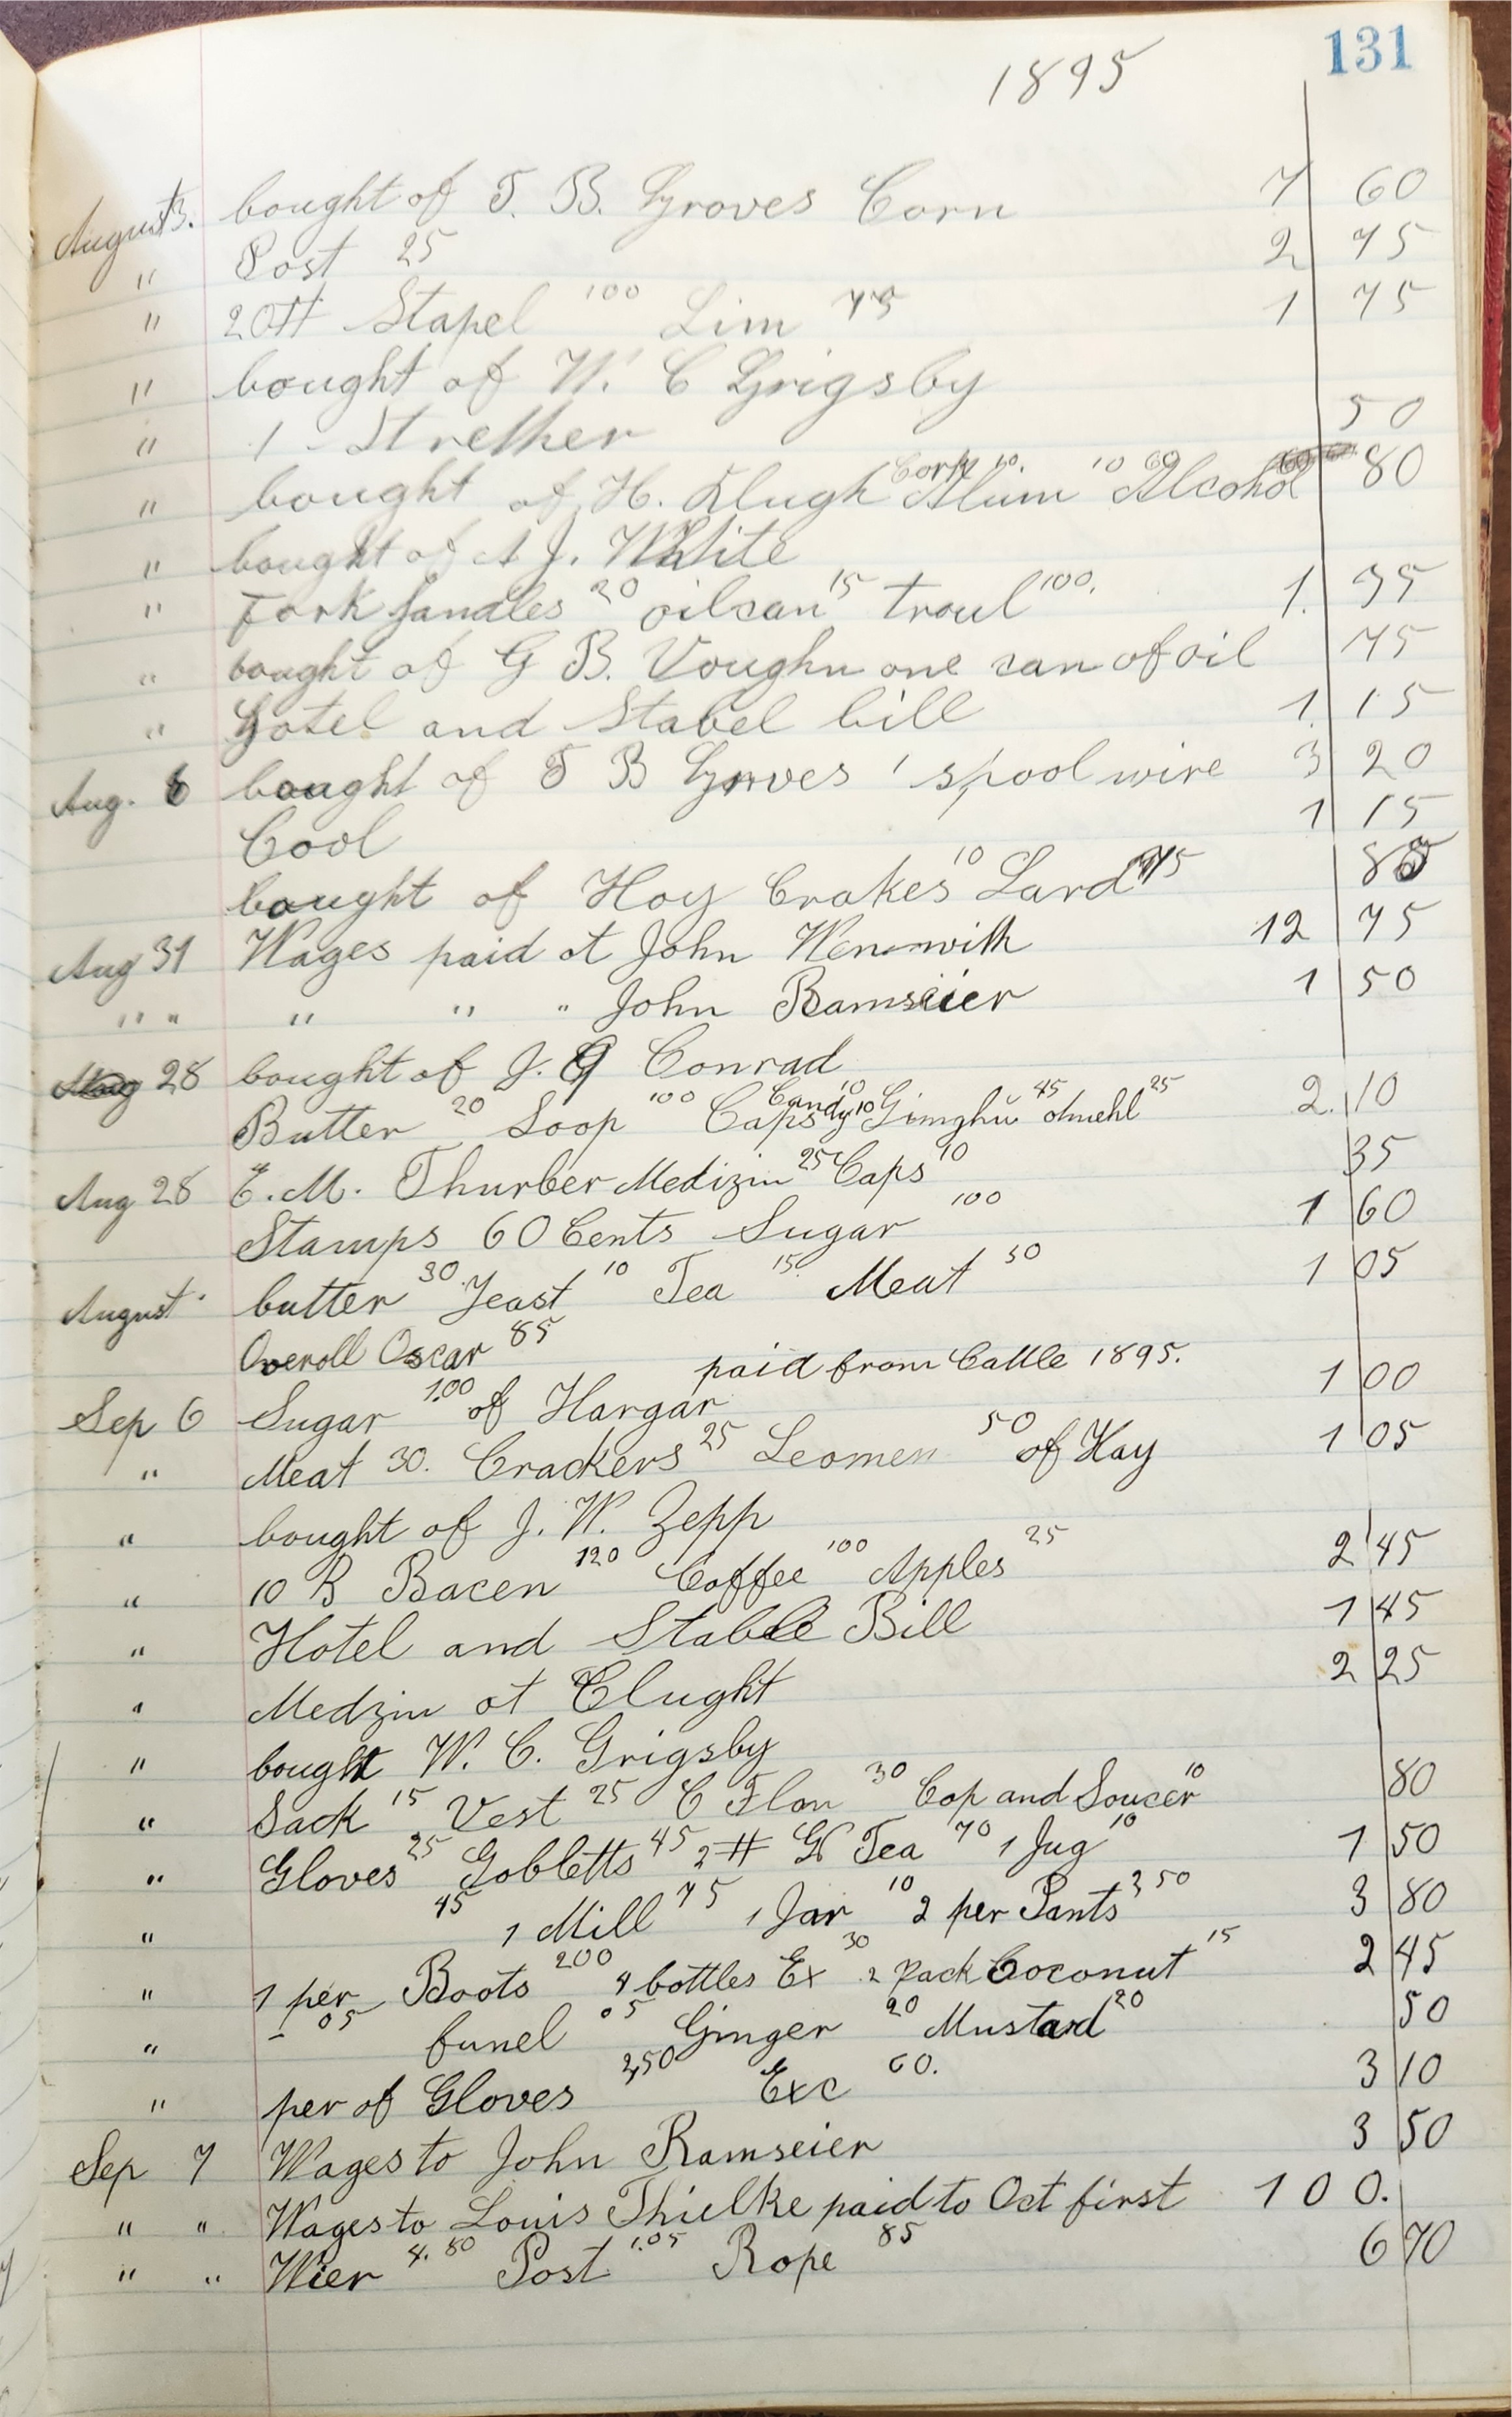 131
1895
August 3. bought of T. B. Groves Corn 7 60
" Post 25 2 75
" 20 # Stapel 100 Lim 75 1 75
" bought of W. C Grigsby
" 1 Strether 50
" bought of H. Klugh Cork 10. Alum 10 Alcohol 60 80
" bought of A J. White
" Fork handles 20 oilcan 15 troul 100. 1. 35
" bought of G B. Voughn one can of oil 75
" Hotel and Stabel bill 1. 15
Aug. 6 bought of T B Groves 1 spool wire 3 20
Cool 1 15
bought of Hoy Crakes 10 Lard 75 85
Aug 31 Wages paid at John Wenmwith 12 75
" " " " " John Ramseier 1 50
28 bought of J. G Conrad
Butter 20 Soop 100 Caps 10 Candy 10 Gimghŭ 45 otmehl 25 2. 10
Aug 28 E. M. Thurber Medizin 25 Caps 10 35
Stamps 60 Cents Sugar 100 1 60
August butter 30. Yeast 10 Tea 15. Meat 50 1 05
Overoll Oscar 85
paid from Cattle 1895.
Sep 6 Sugar 1.00 of Hargar 1 00
" Meat 30. Crackers 25 Leomen 50 of Hay 1 05
" bought of J. W. Zepp
" 10 B Bacen 120 Coffee 100 Apples 25 2 45
" Hotel and Stable Bill 1 45
" Medzin at Clught 2 25
" bought W. C. Grigsby
" Sack 15 Vest 25 C Flan 30 Cop and Soucer 10 80
" Gloves 25 Gobletts 45 2 # G Tea 70 1 Jug 10 1 50
" 45 1 Mill 75 1 Jar 10 2 per Pants 250 3 80
" 1 per Boots 200 4 bottles Ex 30 2 Pack Coconut 15 2 45
" 1 05 funel 05 Ginger 20 Mustard 20 50
" per of Gloves 2,50 Exc 60. 3 10
Sep 7 Wages to John Ramseier 3 50
" " Wages to Louis Thielke paid to Oct first 1 0 0.
" " Wier 4. 80 Post 1.05 Rope 85 6 70